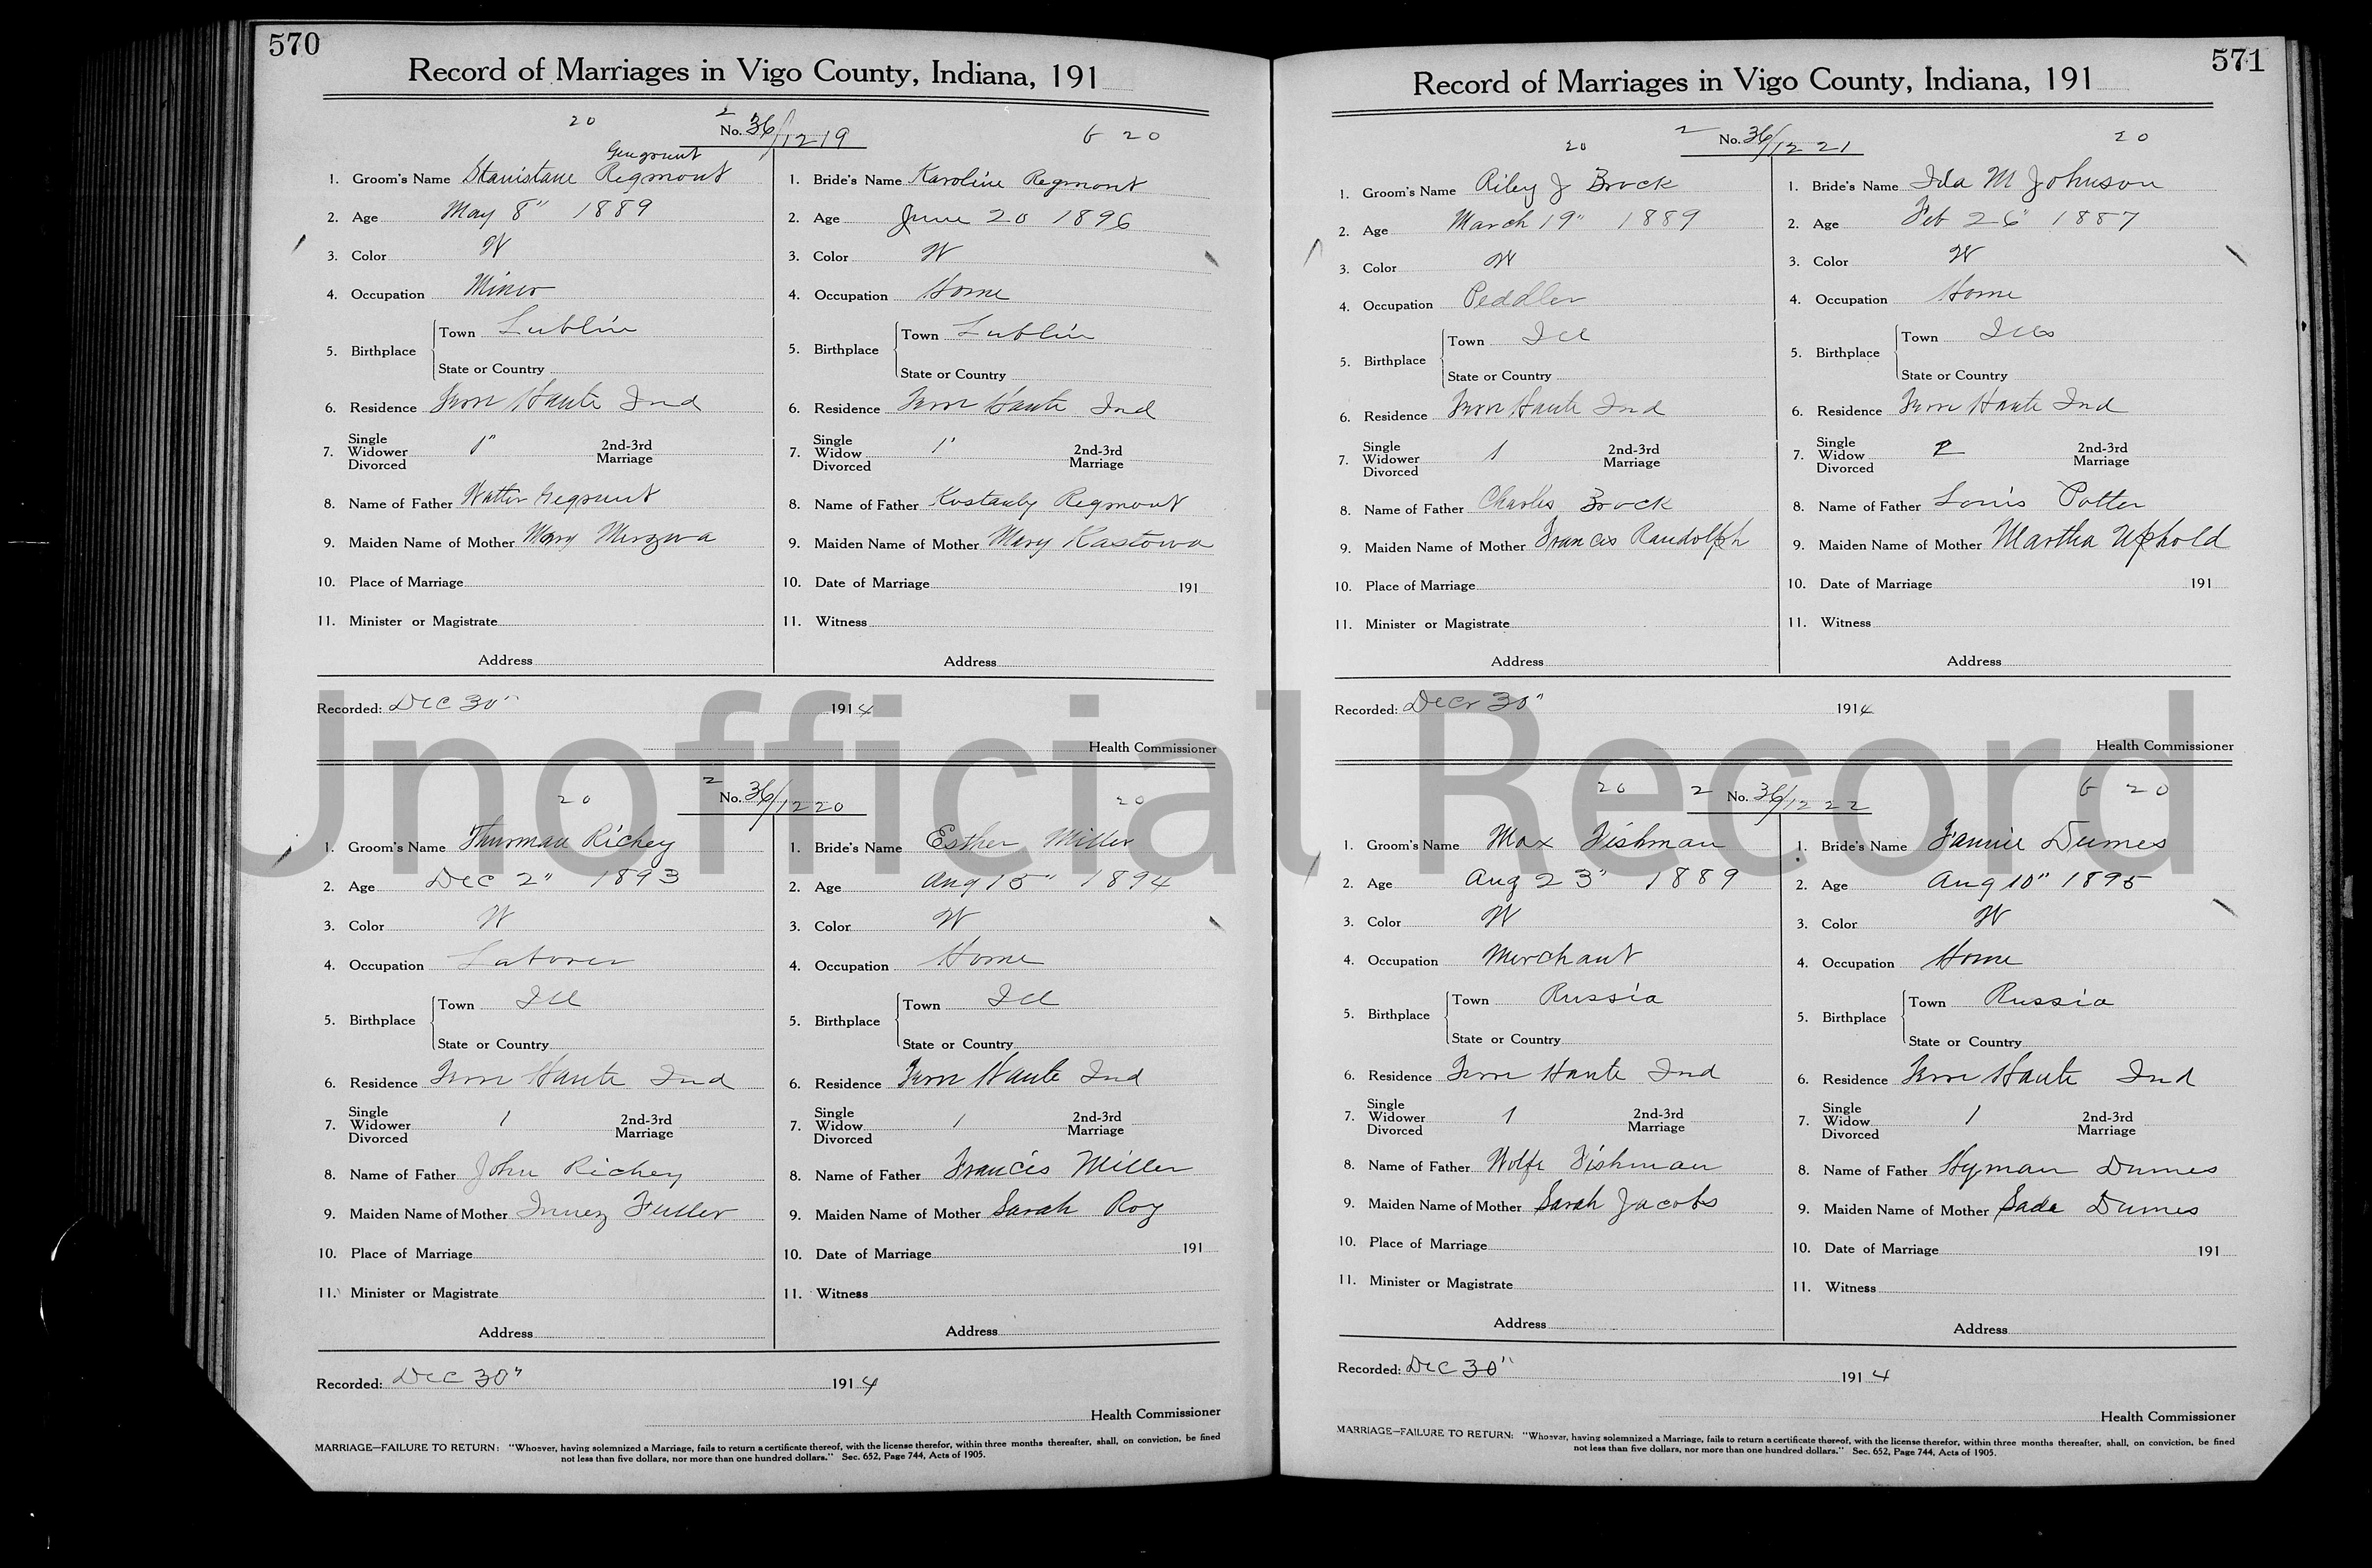 570
Record of Marriages in Vigo County, Indiana, 191
20 2 No. 36/1219 6 20
1. Groom's Name Stanistane Regmont
2. Age May 8" 1889
3. Color W
4. Occupation Miner
5. Birthplace Town Lublin
State or Country
6. Residence Terre Haute Ind
7. Single Widower Divorced 1" 2nd-3rd Marriage
8. Name of Father
9. Maiden Name of Mother Mary
10. Place of Marriage
11. Minister or Magistrate
Address
1. Bride's Name Karoline Regmont
2. Age June 20 1896
3. Color W
4. Occupation Home
5. Birthplace Town Lublin
State or Country
6. Residence Terre Haute Ind
7. Single Widow Divorced 1' 2nd-3rd Marriage
8. Name of Father Regmont
9. Maiden Name of Mother Mary Kastowa
10. Date of Marriage 191
11. Witness
Address
Recorded: Dec 30" 1914
Health Commissioner
20 2 No. 36/1220 20
1. Groom's Name Thurman Richey
2. Age Dec 2" 1893
3. Color W
4. Occupation Laborer
5. Birthplace Town Ill
State or Country
6. Residence Terre Haute Ind
7. Single Widower Divorced 1 2nd-3rd Marriage
8. Name of Father John Richey
9. Maiden Name of Mother Innez Fuller
10. Place of Marriage
11. Minister or Magistrate
Address
1. Bride's Name Esther Miller
2. Age Aug 15" 1894
3. Color W
4. Occupation Home
5. Birthplace Town Ill
State or Country
6. Residence Terre Haute Ind
7. Single Widow Divorced 1 2nd-3rd Marriage
8. Name of Father Francis Miller
9. Maiden Name of Mother Sarah Roy
10. Date of Marriage 191
11. Witness
Address
Recorded: Dec 30" 1914
Health Commissioner
MARRIAGE—FAILURE TO RETURN: "Whoever, having solemnized a Marriage, fails to return a certificate thereof, with the license therefor, within three months thereafter, shall, on conviction, be fined
not less than five dollars, nor more than one hundred dollars." Sec. 652, Page 744, Acts of 1905.
571
Record of Marriages in Vigo County, Indiana, 191
20 2 No. 36/1221 20
1. Groom's Name Riley J Brock
2. Age March 19" 1889
3. Color W
4. Occupation Peddler
5. Birthplace Town Ill
State or Country
6. Residence Terre Haute Ind
7. Single Widower Divorced 1 2nd-3rd Marriage
8. Name of Father Charles Brock
9. Maiden Name of Mother Francis Randolph
10. Place of Marriage
11. Minister or Magistrate
Address
1. Bride's Name Ida M Johnson
2. Age Feb 26" 1887
3. Color W
4. Occupation Home
5. Birthplace Town Ills
State or Country
6. Residence Terre Haute Ind
7. Single Widow Divorced 2 2nd-3rd Marriage
8. Name of Father Louis Potter
9. Maiden Name of Mother Martha Uphold
10. Date of Marriage 191
11. Witness
Address
Recorded: Decr 30" 1914
Health Commissioner
20 2 No. 36/1222 6 20
1. Groom's Name Max Fishman
2. Age Aug 23" 1889
3. Color W
4. Occupation Merchant
5. Birthplace Town Russia
State or Country
6. Residence Terre Haute Ind
7. Single Widower Divorced 1 2nd-3rd Marriage
8. Name of Father Wolfe Fishman
9. Maiden Name of Mother Sarah Jacobs
10. Place of Marriage
11. Minister or Magistrate
Address
1. Bride's Name Fannie Dumes
2. Age Aug 10" 1895
3. Color W
4. Occupation Home
5. Birthplace Town Russia
State or Country
6. Residence Terre Haute Ind
7. Single Widow Divorced 1 2nd-3rd Marriage
8. Name of Father Hyman Dumes
9. Maiden Name of Mother Sade Dumes
10. Date of Marriage 191
11. Witness
Address
Recorded: Dec 30" 1914
Health Commissioner
MARRIAGE—FAILURE TO RETURN: "Whoever, having solemnized a Marriage, fails to return a certificate thereof, with the license therefor, within three months thereafter, shall, on conviction, be fined
not less than five dollars, nor more than one hundred dollars." Sec. 652, Page 744, Acts of 1905.
Unofficial Record